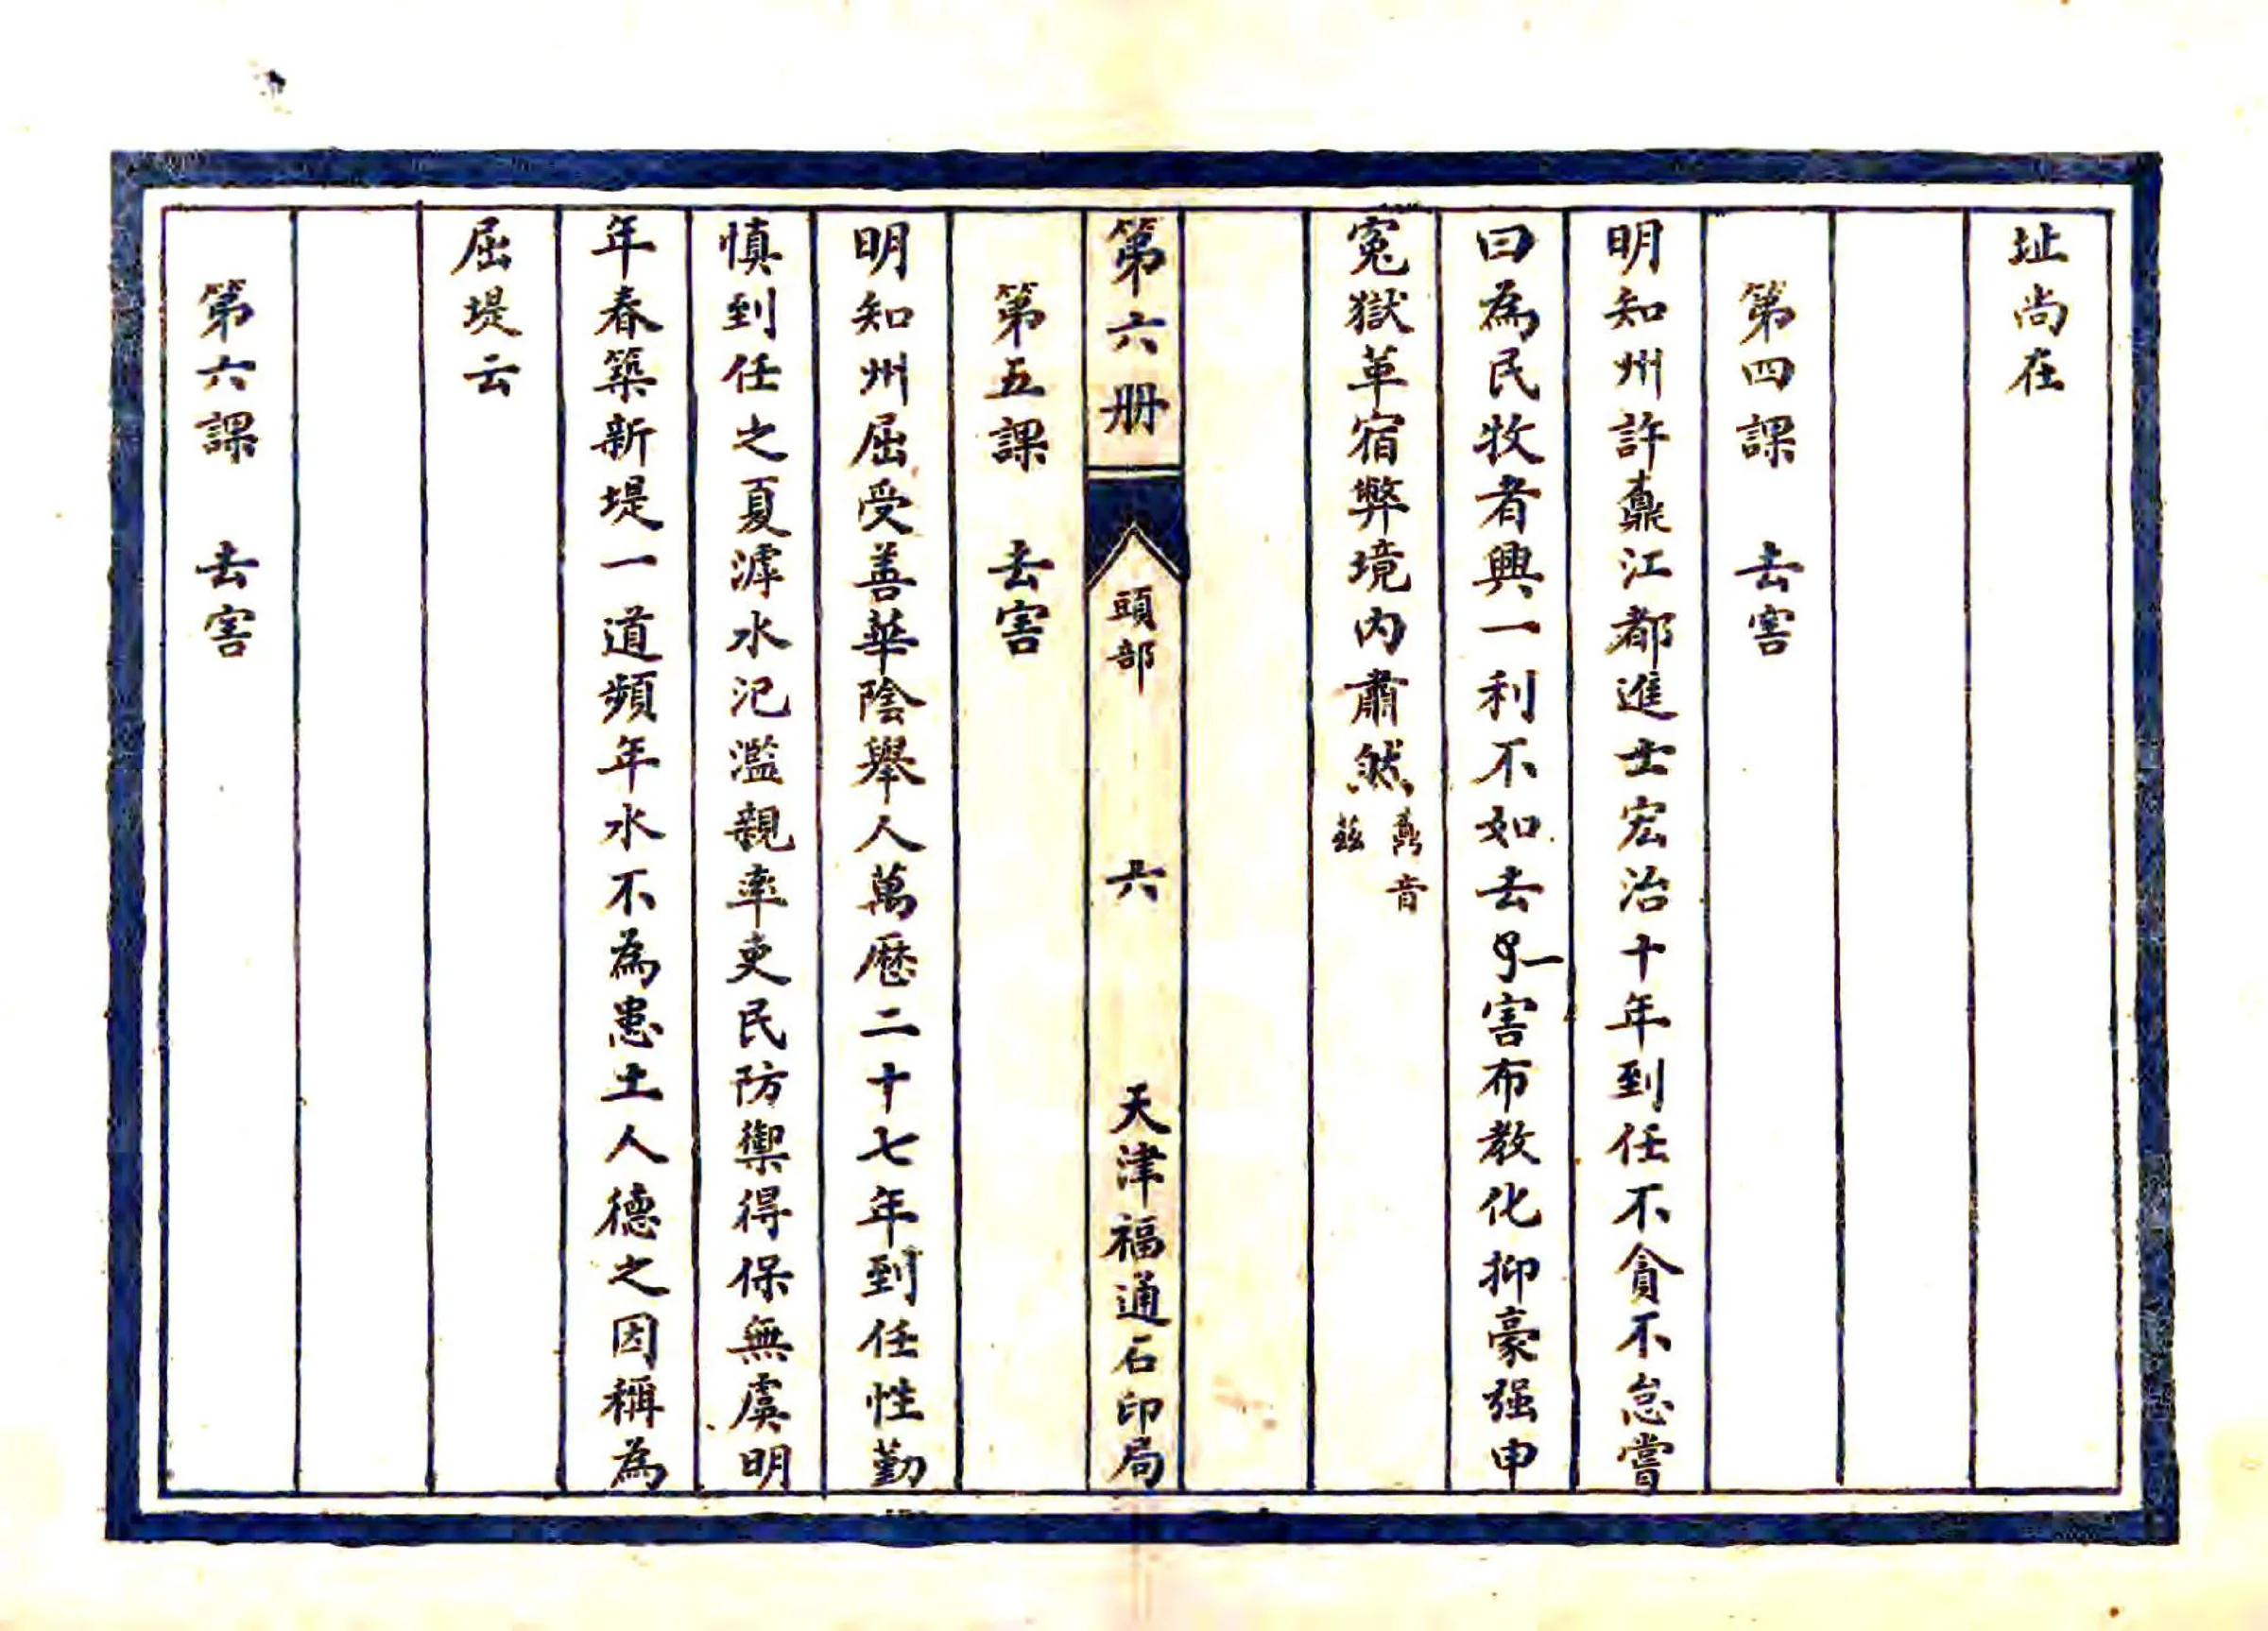 址尚在
第四課　去害
明知州許鼒江都進士宏治十年到任不貪不怠嘗
曰為民牧者興一利不如去一害布教化抑豪强申
寃獄革宿弊境內肅然鼒音茲
第六册　頭部　六　天津福通石印局
第五課　去害
明知州屈受善華陰舉人萬歷二十七年到任性勤
慎到任之夏滹水汜濫親率吏民防禦得保無虞明
年春築新堤一道頻年水不為患土人德之因稱為
屈堤云
第六課　去害